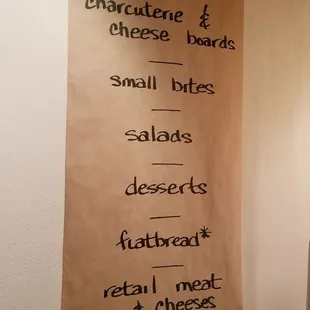 charcuterie &
cheese boards
small bites
salads
desserts
flatbread*
retail meat
& cheeses